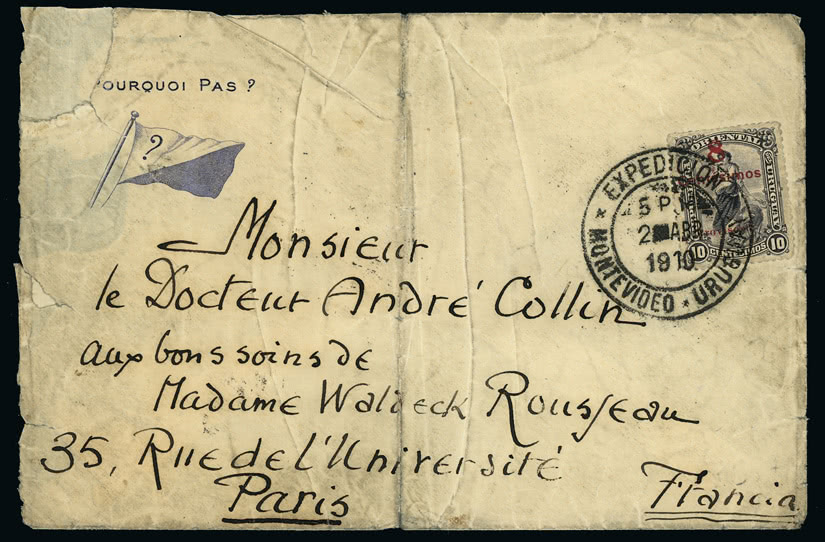 POURQUOI PAS ?
?
ORIENTAL
8
Centésimos
URUGUAY
10 CENTESIMOS 10
* EXPEDICION
5 P.M
2 ABR
1910
* MONTEVIDEO * URUGUAY
Monsieur
le Docteur André Collin
aux bons soins de
Madame Waldeck Rousseau
35, Rue de l'Université
Paris
Francia